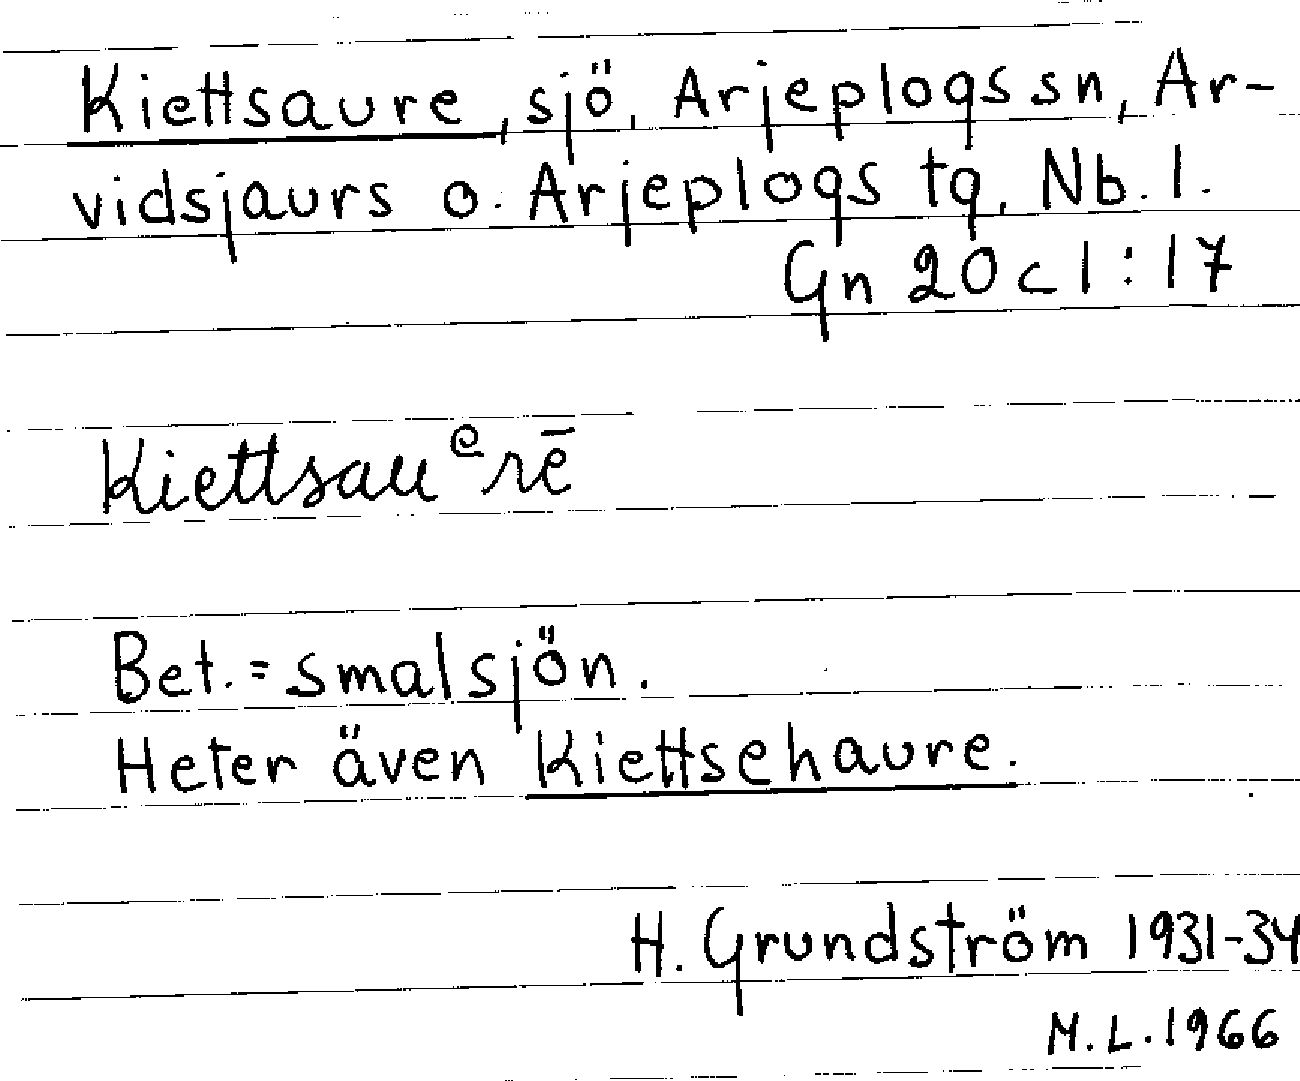 Kiettsaure, sjö, Arjeplogs sn, Ar-
vidsjaurs o. Arjeplogs tg, Nb. l.
Gn 20 c 1 : 17
Kiettsauᵉrē
Bet. = smalsjön.
Heter även Kiettsehaure.
H. Grundström 1931-34
M. L. 1966